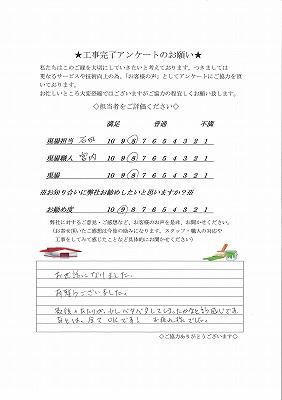 ★工事完了アンケートのお願い★
私たちはこのご縁を大切にしていきたいと考えております。つきましては
更なるサービスや技術向上の為、「お客様の声」としてアンケートにご協力を頂
いております。
お忙しいところ大変恐縮ではございますがご協力の程宜しくお願い致します。
◇担当者をご評価ください◇
満足 普通 不満
現場担当 石田 10 9 8 7 6 5 4 3 2 1
現場職人 宮内 10 9 8 7 6 5 4 3 2 1
現場 10 9 8 7 6 5 4 3 2 1
※お知り合いに弊社お勧めしたいと思いますか？※
お勧め度 10 9 8 7 6 5 4 3 2 1
弊社に対するご意見・ご感想など、お客様のお声を是非、お聞かせください。
(お客様頂いたご感想は今後の励みになります。スタッフ・職人の対応や
工事をしてみて感じたことなど具体的にお聞かせください)
お世話になりました。
有難うございました。
少しベタベタしてしまったかなと
あとは、全てOKです！
◇ご協力ありがとうございます◇